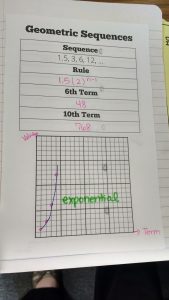 Geometric Sequences
Sequence
1.5, 3, 6, 12, ...
Rule
1.5(2)ⁿ⁻¹
6th Term
48
10th Term
768
Value
exponential
Term